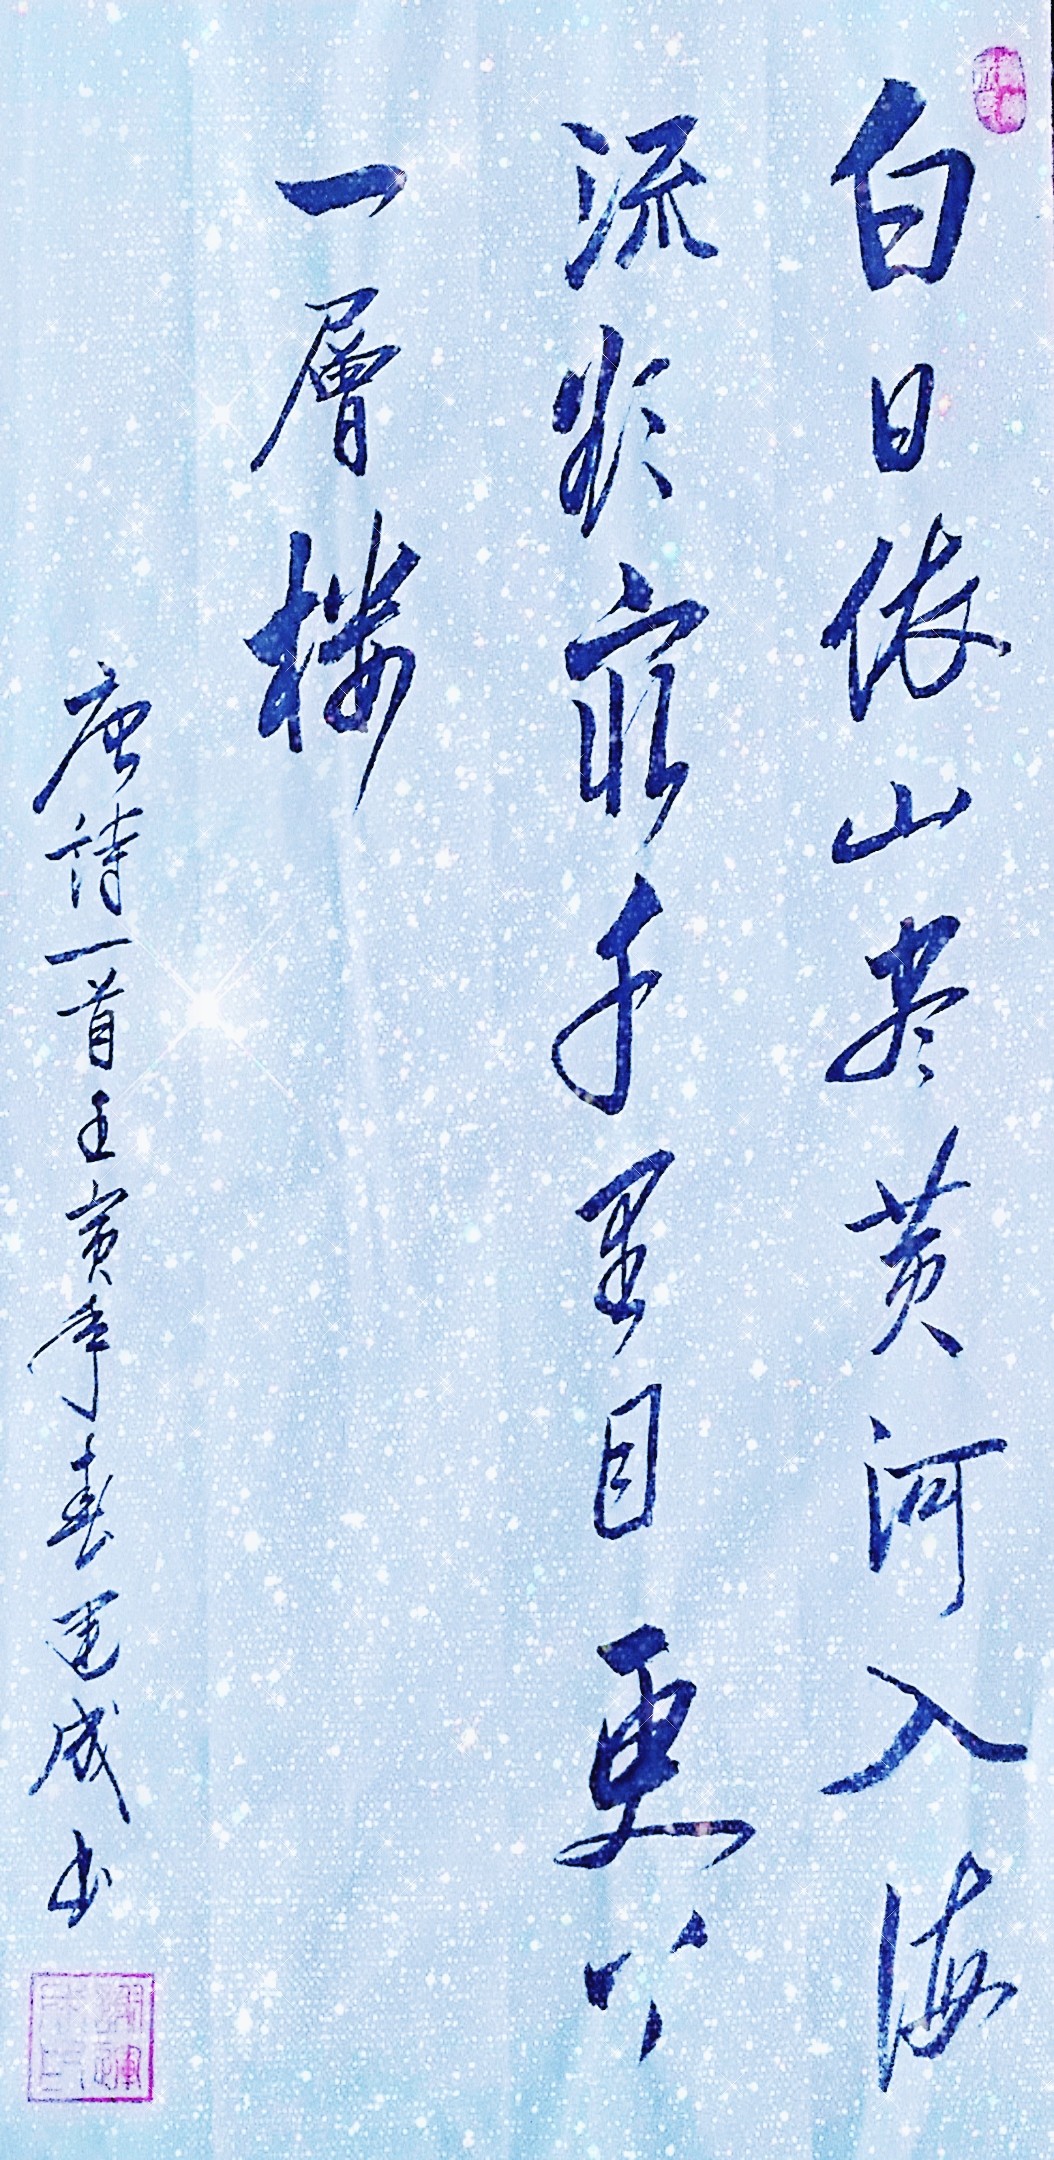 白日依山尽黄河入海
流欲窮千里目更上
一層楼
唐诗一首壬寅年春运成书